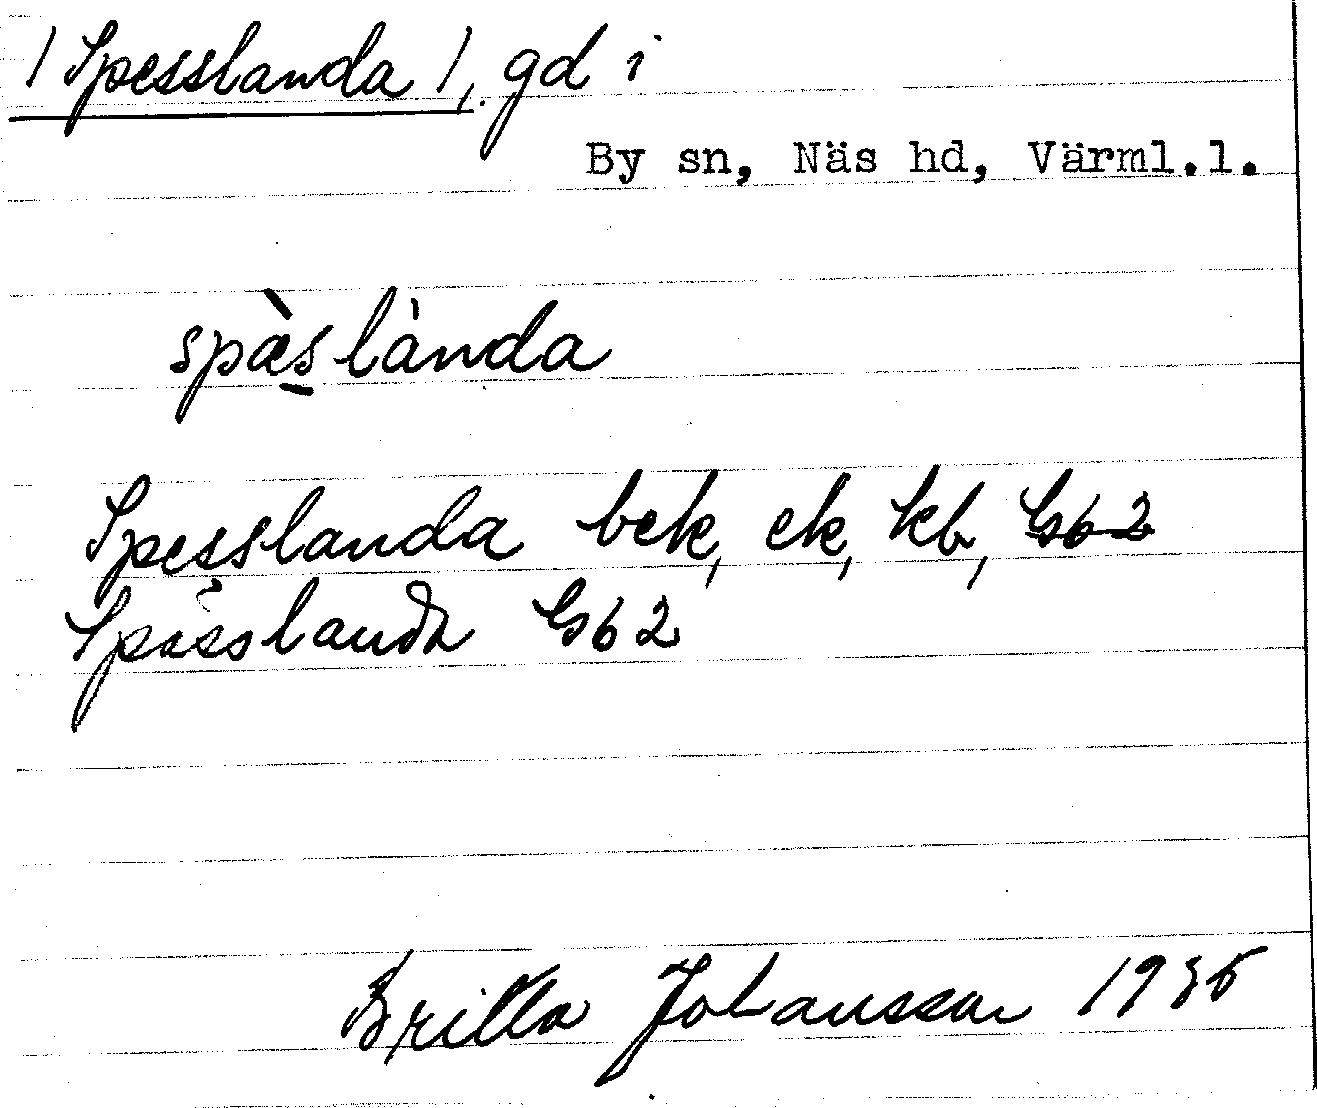 / Spesslanda /, gd i
By sn, Näs hd, Värml.l.
spæ̀slànda
Spesslanda bek, ek, kb, G62
Spässlanda G62
Britta Johansson 1935